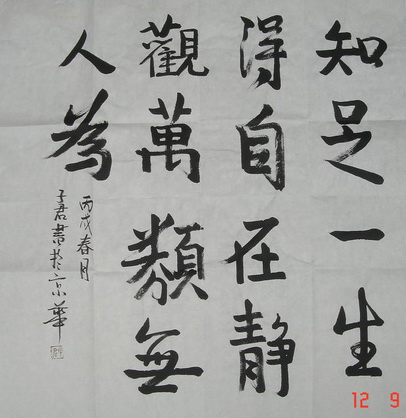 知足一生
得自在静
觀萬類無
人為
丙戌春月
子君書於京華
12 9